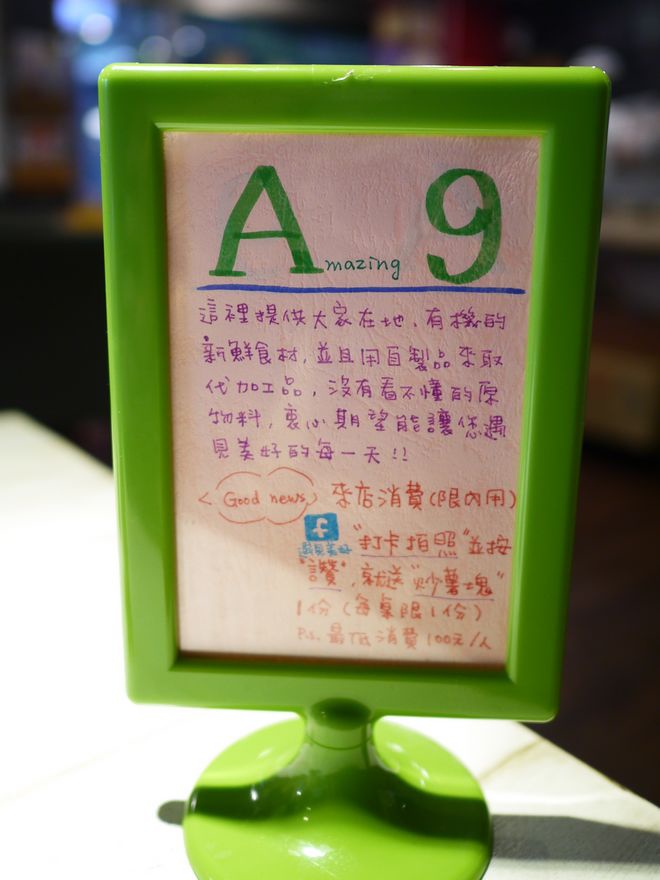 Amazing 9
這裡提供大家在地、有機的
新鮮食材,並且用自製品來取
代加工品,沒有看不懂的原
物料,衷心期望能讓您遇
見美好的每一天!!
< Good news> 來店消費(限內用)
f "打卡拍照"並按
遇見美好
"讚",就送"炒薯塊"
1份(每桌限1份)
P.s. 最低消費100元/人